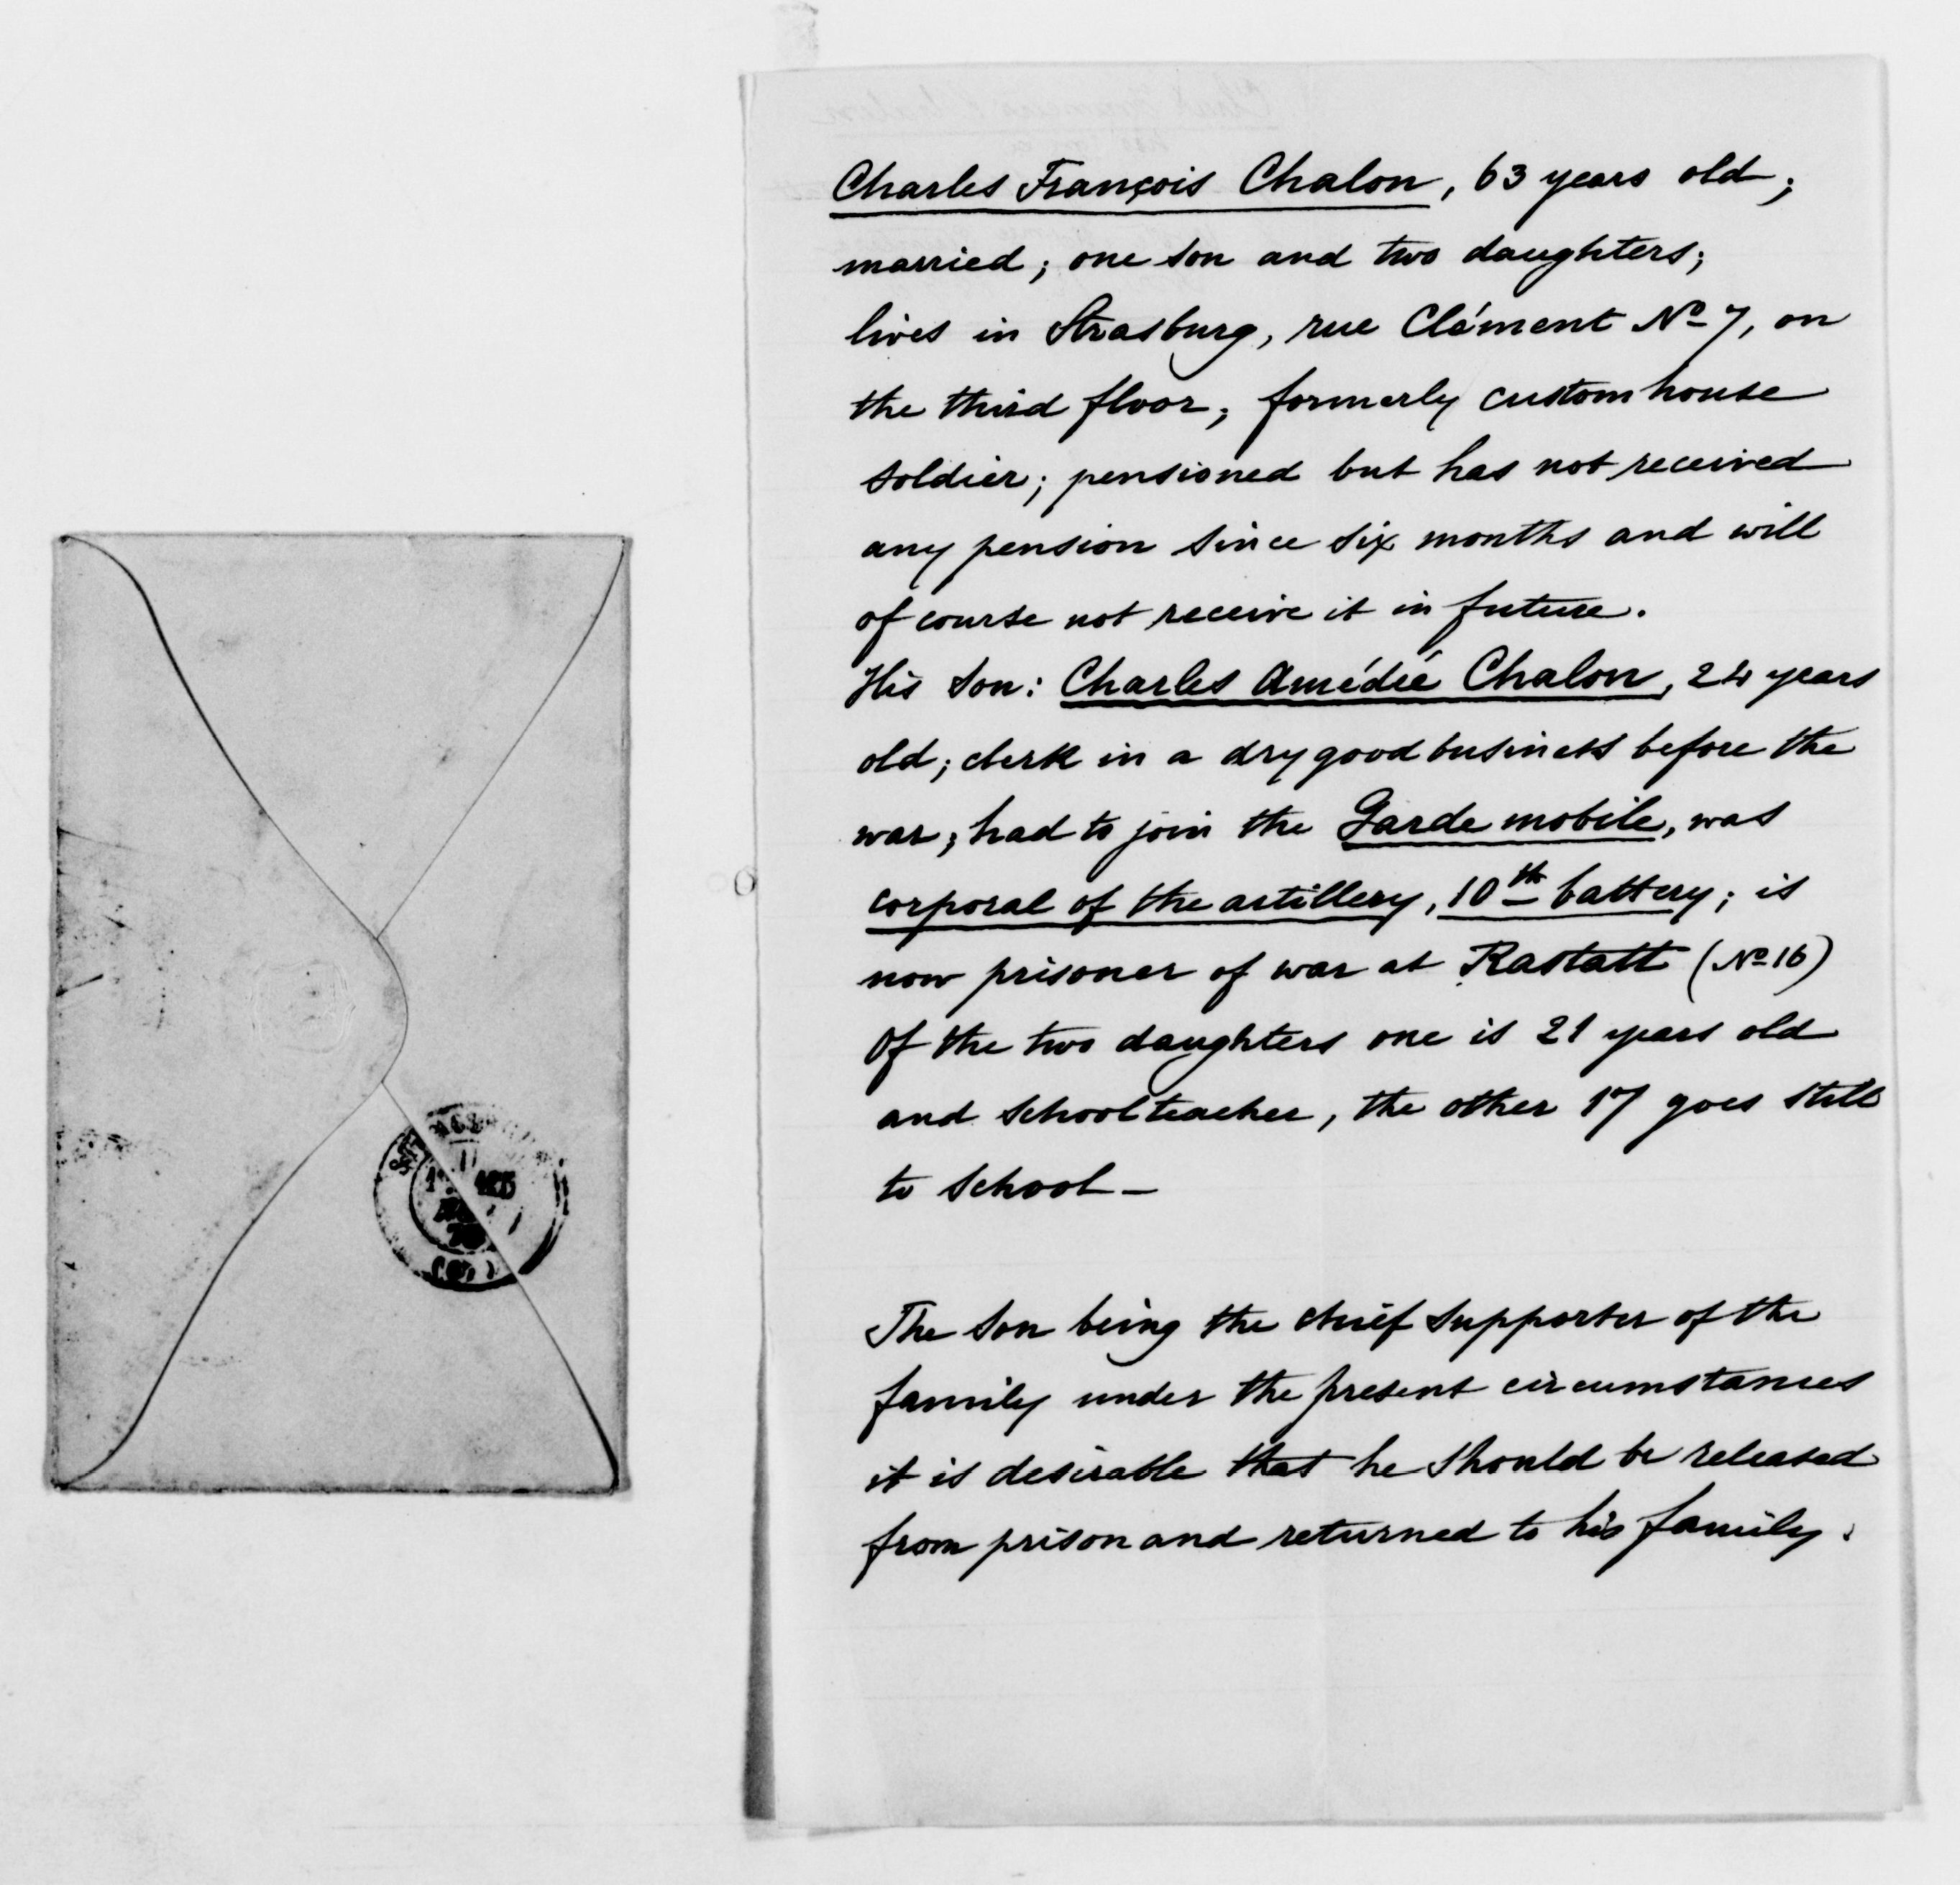 Charles François Chalon, 63 years old;
married; one son and two daughters;
lives in Strasburg, rue Clément No 7, on
the third floor; formerly customhouse
soldier; pensioned but has not received
any pension since six months and will
of course not receive it in future.
His son: Charles Amédée Chalon, 24 years
old; clerk in a dry good business before the
war; had to join the Garde mobile, was
corporal of the artillery, 10th battery; is
now prisoner of war at Rastatt (No 16)
Of the two daughters one is 21 years old
and schoolteacher, the other 17 goes still
to school —
The son being the chief supporter of the
family under the present circumstances
it is desirable that he should be released
from prison and returned to his family.